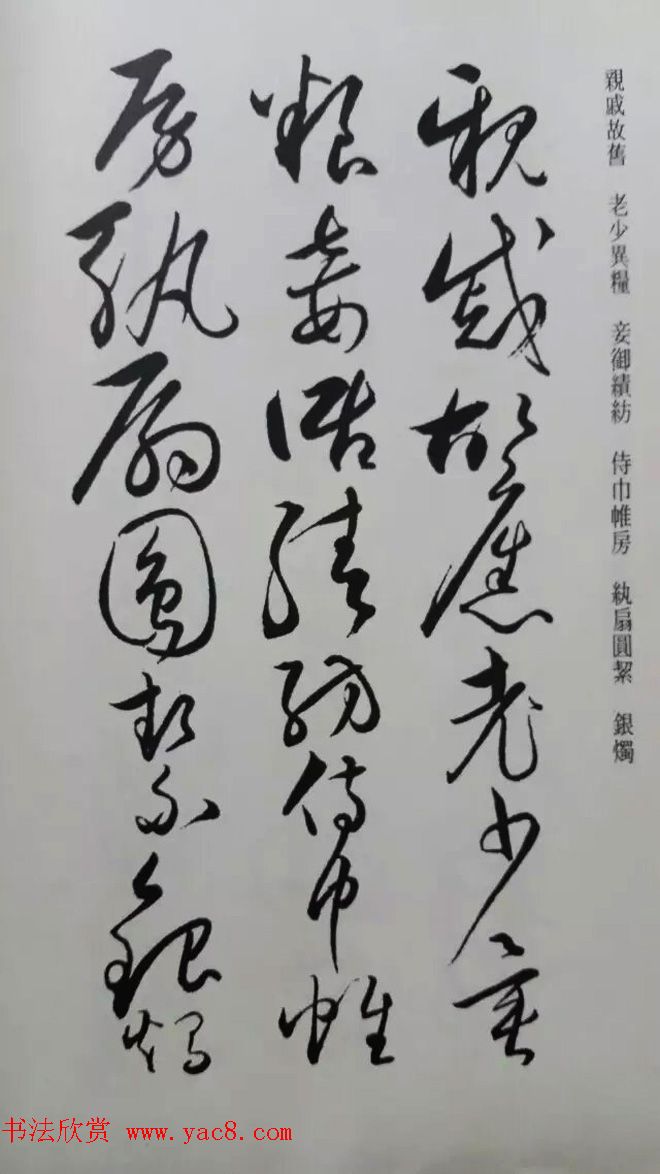 親戚故舊　老少異糧　妾御績紡　侍巾帷房　紈扇圓絜　銀燭
親戚故舊老少異
糧妾御績紡侍巾帷
房紈扇圓絜銀燭
书法欣赏 www.yac8.com